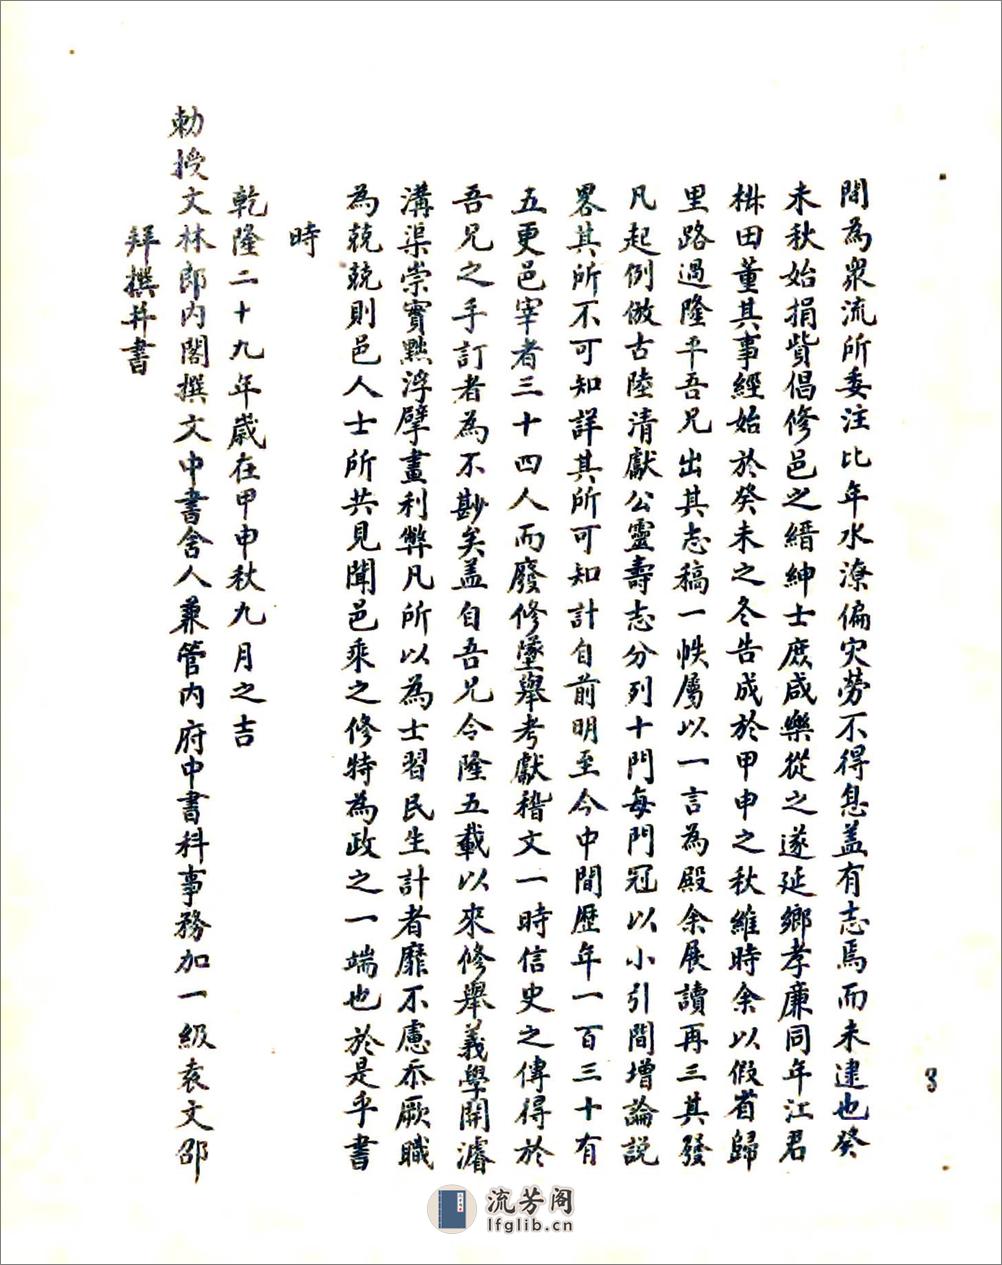 間為衆流所委注比年水潦偏灾勞不得息盖有志焉而未逮也癸
未秋始捐貲倡修邑之縉紳士庶咸樂從之遂延鄉孝廉同年江君
楙田董其事經始於癸未之冬告成於甲申之秋維時余以假省歸
里路過隆平吾兄出其志稿一帙屬以一言為殿余展讀再三其發
凡起例倣古陸清獻公靈壽志分列十門每門冠以小引間增論説
畧其所不可知詳其所可知計自前明至今中間歷年一百三十有
五更邑宰者三十四人而廢修墜舉考獻稽文一時信史之傳得於
吾兄之手訂者為不尠矣盖自吾兄令隆五載以來修舉義學開濬
溝渠崇實黜浮擘畫利弊凡所以為士習民生計者靡不慮忝厥職
為兢兢則邑人士所共見聞邑乘之修特為政之一端也於是乎書
時
乾隆二十九年歲在甲申秋九月之吉
勅授文林郎内閣撰文中書舍人兼管内府中書科事務加一級袁文邵
拜撰并書
3
流芳阁
lfglib.cn